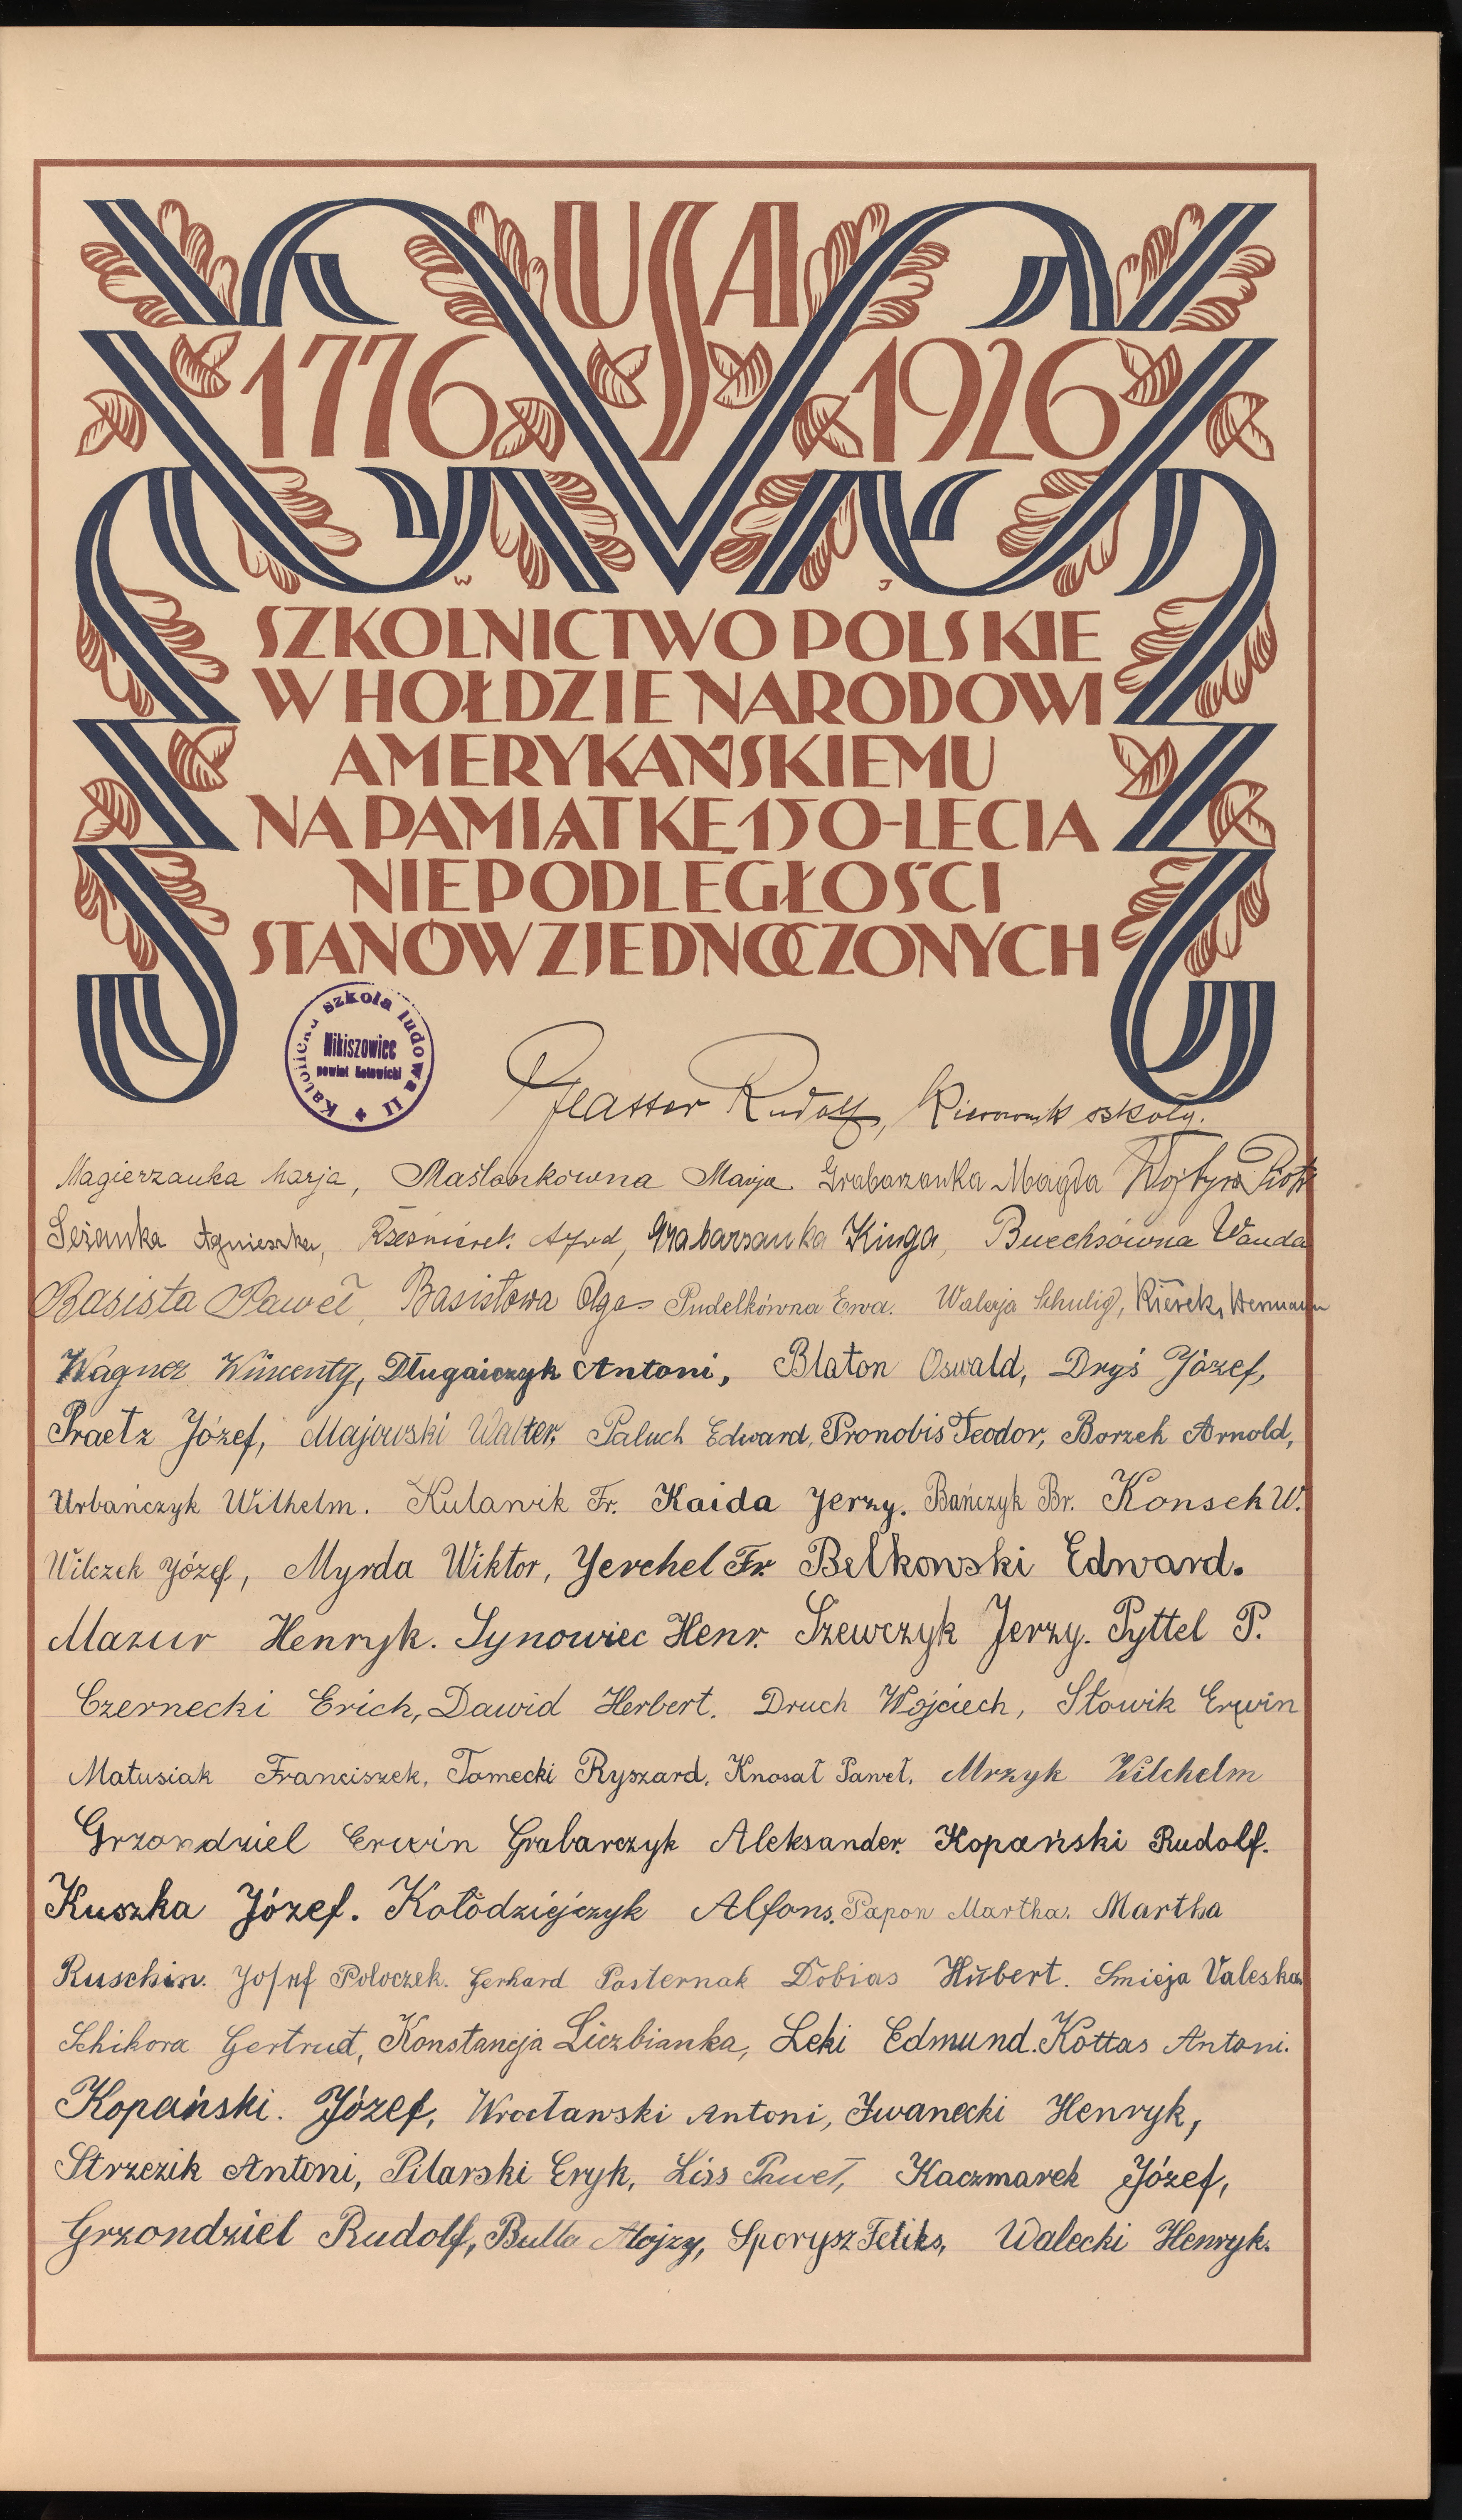 USA
1776 1926
W J
SZKOLNICTWO POLSKIE
W HOŁDZIE NARODOWI
AMERYKAŃSKIEMU
NA PAMIĄTKĘ 150-LECIA
NIEPODLEGŁOŚCI
STANÓW ZJEDNOCZONYCH
szkoła ludowa II
Nikiszowiec
powiat Katowicki
Rudolf, Kierownik szkoły.
Magierzanka Marja, Maślankówna Marja Grabarzanka Magda Wojtyra Piotr
Agnieszka, Grabarzanka Kinga, Buechsówna Wanda
Basista Paweł, Basistowa Olga Pudełkówna Ewa. Walerja Schulig, Hermann
Wagner Wincenty, Długaiczyk Antoni, Blaton Oswald, Dryś Józef,
Praetz Józef, Majowski Walter, Paluch Edward, Pronobis Teodor, Borzek Arnold,
Urbańczyk Wilhelm. Kulawik Fr. Kaida Jerzy. Bańczyk Br. Konsek W.
Wilczek Józef, Myrda Wiktor, Jerchel Fr. Bełkowski Edward.
Mazur Henryk. Synowiec Henr. Szewczyk Jerzy. Pyttel P.
Czernecki Erich, Dawid Herbert. Druch Wojciech, Słowik Erwin
Matusiak Franciszek, Tomecki Ryszard, Knosał Paweł, Mrzyk Wilchelm
Grzondziel Erwin Grabarczyk Aleksander. Kopański Rudolf.
Kuszka Józef. Kołodziejczyk Alfons. Papon Martha. Martha
Ruschin. Josef Poloczek. Gerhard Pasternak Dobias Hubert. Smieja Valeska
Schikora Gertrud, Konstancja Liczbianka, Leki Edmund. Kottas Antoni.
Kopański. Józef, Wrocławski Antoni, Iwanecki Henryk,
Strzezik Antoni, Pilarski Eryk, Liss Paweł, Kaczmarek Józef,
Grzondziel Rudolf, Bulla Alojzy, Sporysz Feliks, Walecki Henryk.